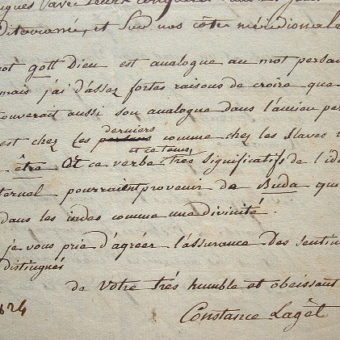 diterrannée et sur nos côtes méridionales
mot gott Dieu est analogue au mot persan
mais j'ai d'assez fortes raisons de croire que
trouverait aussi son analogue dans l'ancien per
est chez les derniers comme chez les slaves
et ca tous
être. Et ce verbe très significatif de l'id
ternel pourraient provenir de Buda que
dans les indes comme une divinité.
je vous prie d'agréer l'assurance Des sentim
distingués
de votre très humble et obeissant
Constance Lagèt
824